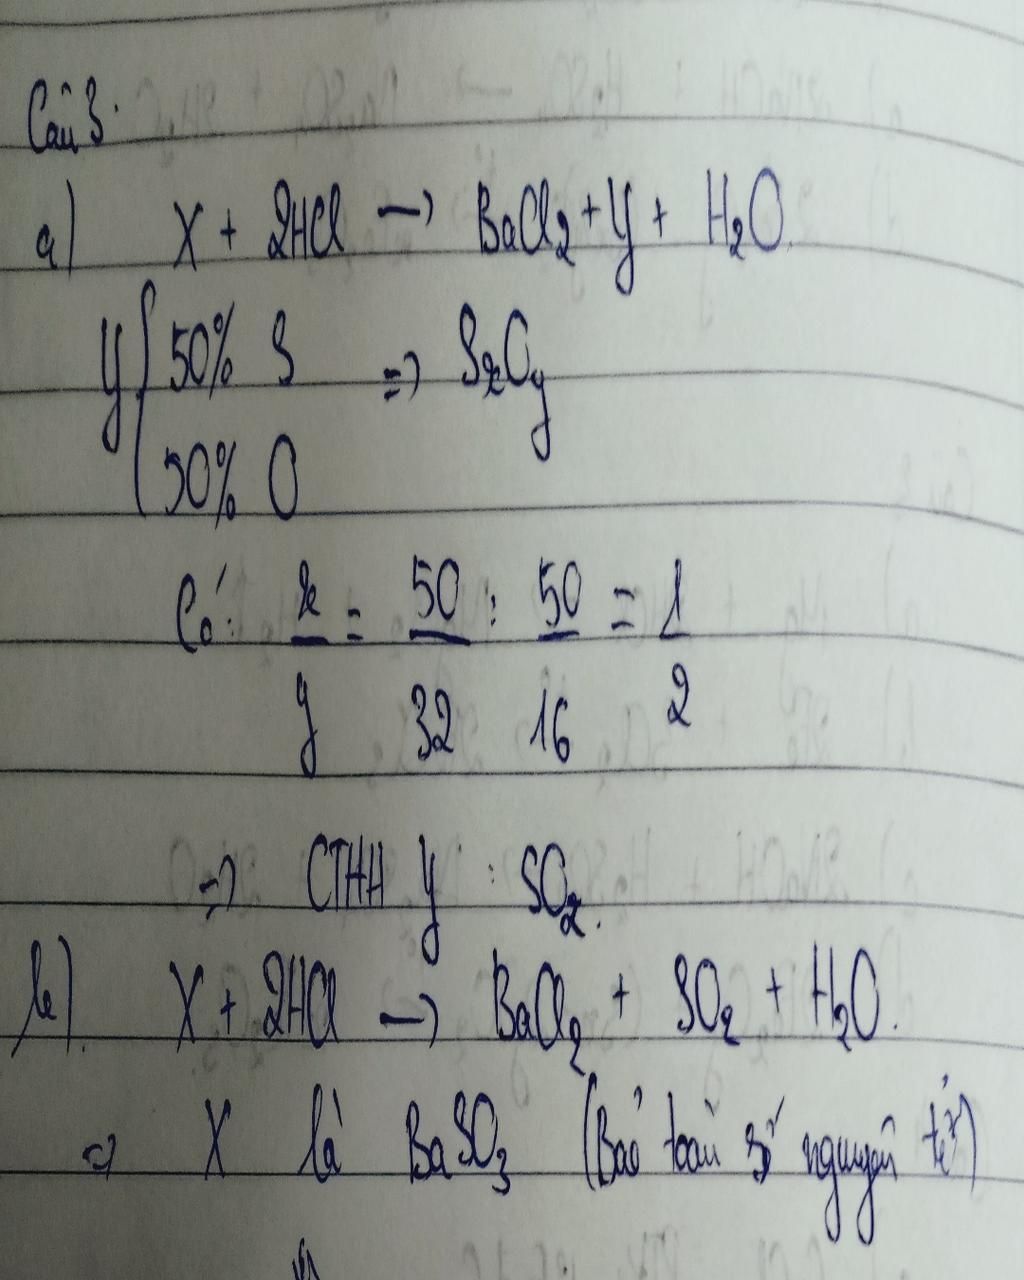 Câu 3.
a) X + 2HCl → BaCl2 + Y + H2O.
Y { 50% S => SxOy
50% O
Có: x/y = 50/32 : 50/16 = 1/2
=> CTHH Y : SO2.
b). X + 2HCl → BaCl2 + SO2 + H2O.
=> X là BaSO3 (Bảo toàn số nguyên tử)